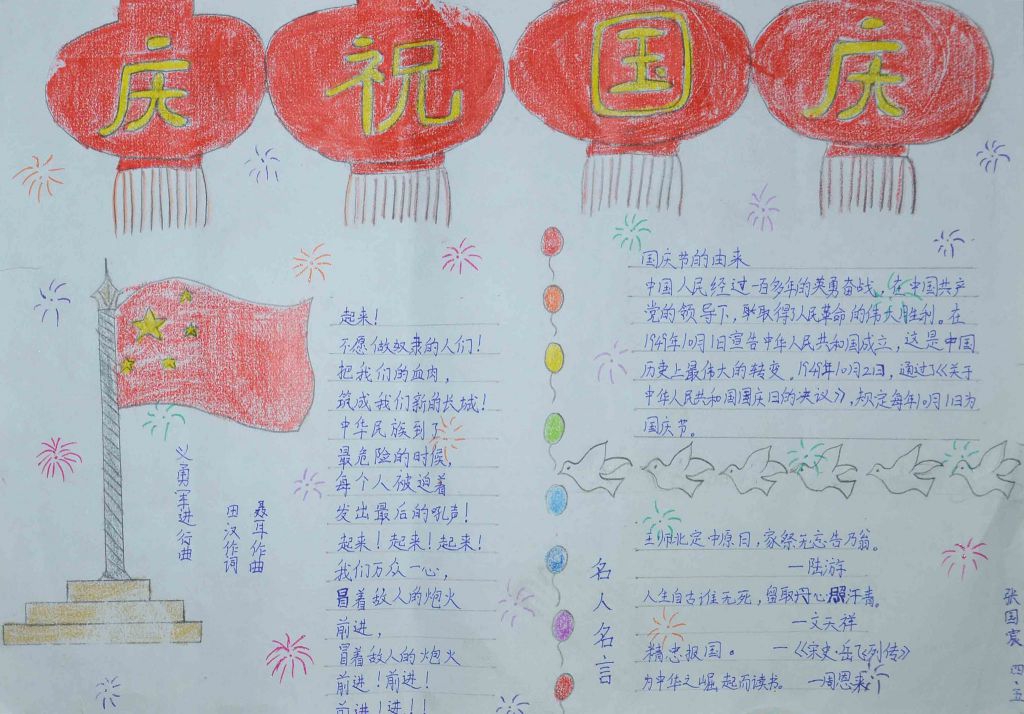 庆祝国庆
义勇军进行曲
田汉作词
聂耳作曲
起来！
不愿做奴隶的人们！
把我们的血肉，
筑成我们新的长城！
中华民族到了
最危险的时候，
每个人被迫着
发出最后的吼声！
起来！起来！起来！
我们万众一心，
冒着敌人的炮火
前进，
冒着敌人的炮火
前进！前进！
前进！进！！
国庆节的由来
中国人民经过一百多年的英勇奋战，在中国共产
党的领导下，取得了人民革命的伟大胜利。在
1949年10月1日宣告中华人民共和国成立，这是中国
历史上最伟大的转变。1949年10月2日，通过了《关于
中华人民共和国国庆日的决议》，规定每年10月1日为
国庆节。
名人名言
王师北定中原日，家祭无忘告乃翁。
—陆游
人生自古谁无死，留取丹心照汗青。
—文天祥
精忠报国。 —《宋史·岳飞列传》
为中华之崛起而读书。 —周恩来
张国宾 四·五